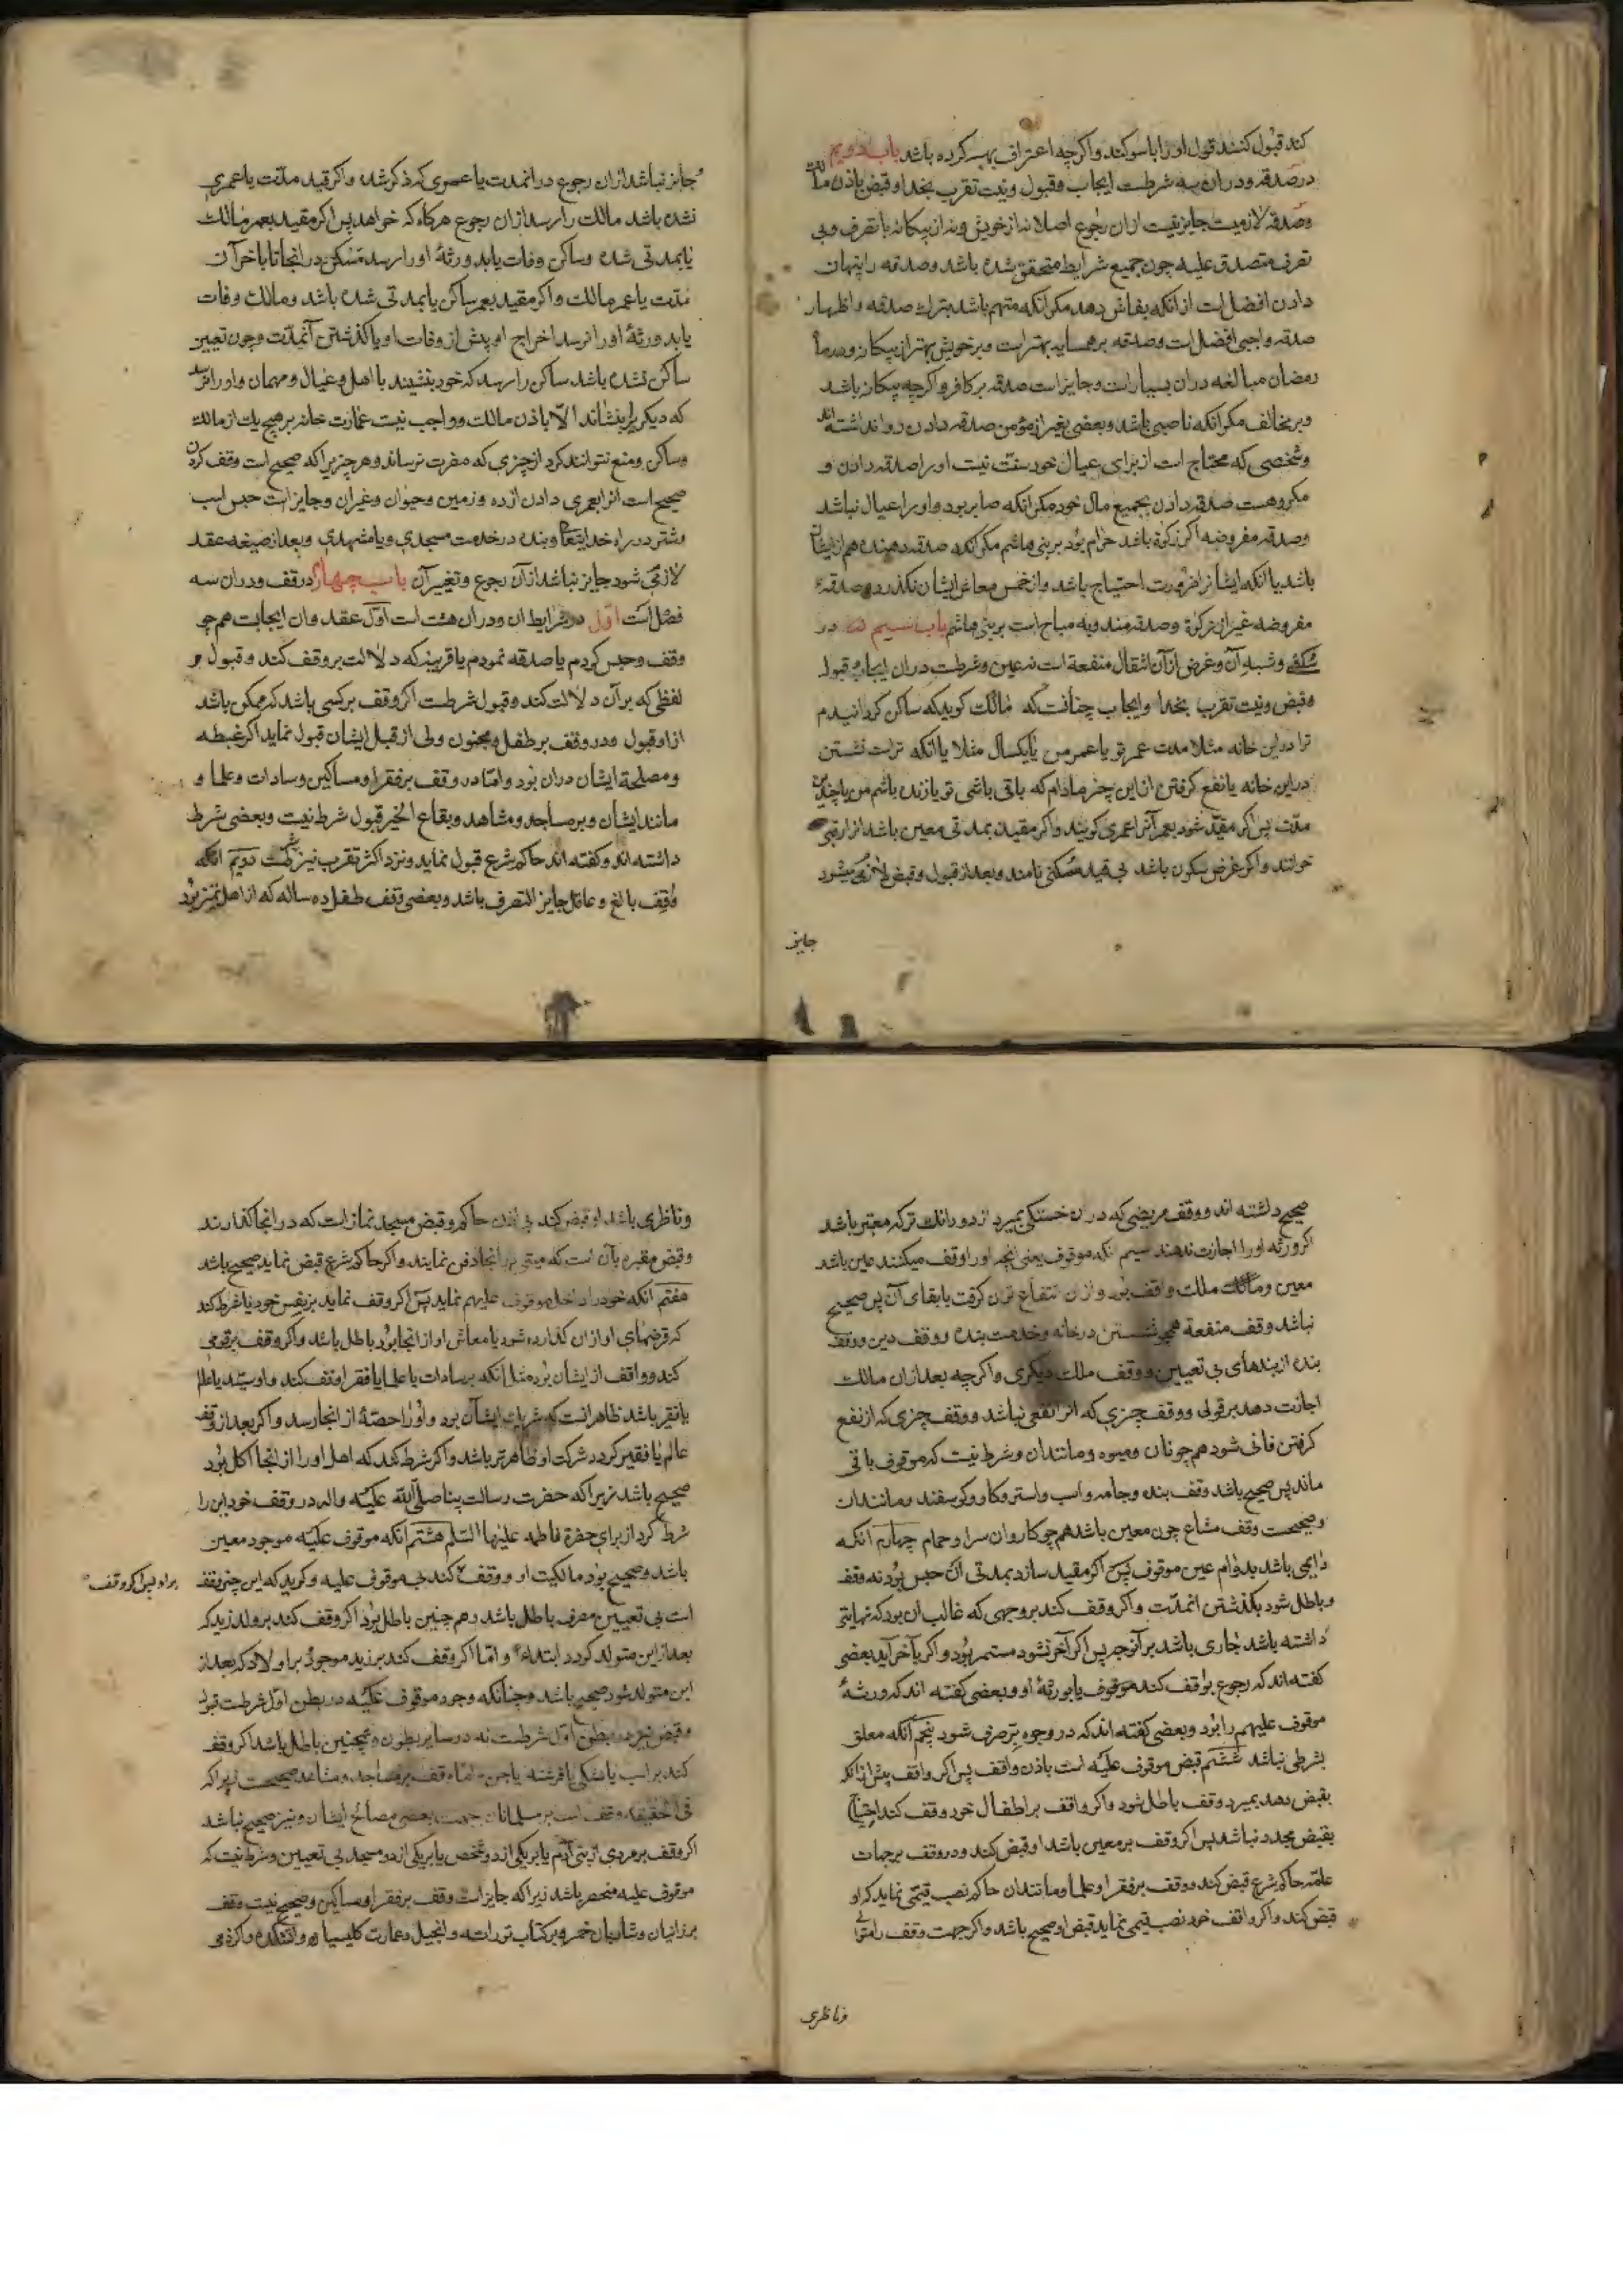 کند قبول کنند قول او را با سوکند و اکرچه اعتراف بهبه کرده باشد باب دویم
در صدقه و در ان سه شرطست ایجاب و قبول و نیت تقرب بخدا و قبض باذن مالک
و صدقه لازمیست جایز نیست ازان رجوع اصلا نه از خویش و نه از بیکانه با تصرف و بی
تصرف متصدق علیه چون جمیع شرایط متحقق شده باشد و صدقه را پنهان
دادن افضل است از انکه بفاش دهد مکر انکه متهم باشد بترک صدقه و اظهار
صدقه واجبی افضل است و صدقه بر همسایه بهتر است و بر خویش بهتر از بیکانه و در ماه
رمضان مبالغه دران بسیار است و جایز است صدقه بر کافر و اکرچه بیکانه باشد
و بر مخالف مکر انکه ناصبی باشد و بعضی بغیر از مؤمن صدقه دادن روا نداشته اند
و شخصی که محتاج است از برای عیال خود سنت نیست او را صدقه دادن و
مکروهست صدقه دادن بجمیع مال خود مکر انکه صابر بود و او را عیال نباشد
و صدقه مفروضه اکر زکوة باشد حرام بود بر بنی هاشم مکر انکه صدقه دهنده هم از ایشان
باشد یا انکه ایشانرا ضرورت احتیاج باشد و از خمس معاش ایشان نکذرد و صدقهٔ
مفروضه غیر از زکوة و صدقه مندوبه مباح است بر بنی هاشم باب سیم در
سکنی و شبه آن و غرض از آن انتقال منفعة است نه عین و شرطست دران ایجاب و قبول
و قبض و نیت تقرب بخدا و ایجاب چنانست که مالک کوید که ساکن کردانیدم
ترا در این خانه مثلا مدت عمر تو یا عمر من یا یکسال مثلا یا انکه تراست نشستن
در این خانه یا نفع کرفتن از این چیز مادام که باقی باشی تو یا زنده باشم من یا چندین
مدت پس اکر مقید شود بعمر آنرا عمری کویند و اکر مقید بمدتی معین باشد انرا رقبی
خوانند و اکر غرض سکون باشد بی قید سکنی نامند و بعد از قبول و قبض لازم میشود
جایز
جایز نباشد ازان رجوع در انمدت یا عمری که ذکر شد و اکر قید مدت یا عمری
نشده باشد مالک را رسد ازان رجوع هرکاه که خواهد پس اکر مقید بعمر مالک
یا بمدتی شده و ساکن وفات یابد ورثهٔ او را رسد تمسکن در انجا تا باخر آن
مدت یا عمر مالک و اکر مقید بعمر ساکن یا بمدتی شده باشد و مالک وفات
یابد ورثهٔ او را نرسد اخراج او پیش از وفات او یا کذشتن آنمدت و چون تعیین
ساکن نشده باشد ساکن را رسد که خود بنشیند با اهل و عیال و مهمان و او را نرسد
که دیکریرا بنشاند الا باذن مالک و واجب نیست عمارت خانه بر هیچ یک از مالک
و ساکن و منع نتوانند کرد از چیزی که مضرت نرساند و هر چیزیرا که صحیح است وقف کردن
صحیح است انرا بعمری دادن از ده و زمین و حیوان و غیران و جایز است حبس اسب
و شتر در راه خدایتعا و بنده در خدمت مسجدی و یا مشهدی و بعد از صیغه عقد
لازم شود جایز نباشد از آن رجوع و تغییر آن باب چهارم در وقف و دران سه
فصل است اول در شرایط ان و دران هشت است اول عقد و ان ایجابست همچو
وقف و حبس کردم یا صدقه نمودم با قرینهٔ که دلالت بر وقف کند و قبول و
لفظی که بر آن دلالت کند و قبول شرطست اکر وقف بر کسی باشد که ممکن باشد
از او قبول و در وقف بر طفل و مجنون ولی از قبل ایشان قبول نماید اکر غبطه
و مصلحة ایشان دران بود و اما در وقف بر فقرا و مساکین و سادات و علما و
مانند ایشان و بر مساجد و مشاهد و بقاع الخیر قبول شرط نیست و بعضی شرط
داشته اند و کفته اند حاکم شرع قبول نماید و نزد اکثر تقرب نیز شرطست دویم انکه
واقف بالغ و عاقل جایز التصرف باشد و بعضی وقف طفل ده ساله که از اهل تمیز بود
صحیح داشته اند و وقف مریضی که دران خستکی بمیرد از دو دانک ترکه معتبر باشد
اکر ورثه او را اجازت ندهند سیم انکه موقوف یعنی انچه او را وقف میکنند عین باشد
معین و مالک ملک واقف بود و ازان انتفاع توان کرفت با بقای آن پس صحیح
نباشد وقف منفعة همچو نشستن در خانه و خدمت بنده و وقف دین و وقف
بنده از بندهای بی تعیین و وقف ملک دیکری و اکرچه بعد ازان مالک
اجازت دهد بر قولی و وقف چیزی که انرا نفعی نباشد و وقف چیزی که از نفع
کرفتن فانی شود همچو نان و میوه و مانندان و شرط نیست که موقوف باقی
ماند پس صحیح باشد وقف بنده و جامه و اسب و استر و کاو و کوسفند و مانندان
و صحیحست وقف مشاع چون معین باشد همچو کاروان سرا و حمام چهارم انکه
دایمی باشد بدوام عین موقوف پس اکر مقید سازد بمدتی آن حبس بود نه وقف
و باطل شود بکذشتن انمدت و اکر وقف کند بر وجهی که غالب ان بود که نهایتی
داشته باشد جاری باشد بر آنوجه پس اکر آخر نشود مستمر بود و اکر بآخر آید بعضی
کفته اند که رجوع بواقف کند یا بورثهٔ او و بعضی کفته اند که ورثهٔ
موقوف علیهم را بود و بعضی کفته اند که در وجوه بر صرف شود پنجم آنکه معلق
بشرطی نباشد ششم قبض موقوف علیه است باذن واقف پس اکر واقف پیش از انکه
بقبض دهد بمیرد وقف باطل شود و اکر واقف بر اطفال خود وقف کند احتیاج
بقبض مجدد نباشد پس اکر وقف بر معین باشد او قبض کند و در وقف بر جهات
عامه حاکم شرع قبض کند و وقف بر فقرا و علما و مانندان حاکم نصب قیمی نماید که او
قبض کند و اکر واقف خود نصب قیمی نماید قبض او صحیح باشد و اکر جهت وقف را متولی
و ناظری
و ناظری باشد او قبض کند بی اذن حاکم و قبض مسجد نماز است که در انجا کذارند
و قبض مقبره بآن است که میتی در انجا دفن نمایند و اکر حاکم شرع قبض نماید صحیح باشد
هفتم آنکه خود را داخل موقوف علیهم نماید پس اکر وقف نماید بر نفس خود یا شرط کند
که قرضهای او ازان کذارده شود یا معاش او از انجا بود باطل باشد و اکر وقف بر قومی
کند و واقف از ایشان بود مثل آنکه بر سادات یا علما یا فقرا وقف کند و او سید یا عالم
یا فقیر باشد ظاهر انست که شریک ایشان بود و او را حصهٔ از انجا رسد و اکر بعد از وقف
عالم یا فقیر کردد شرکت او ظاهرتر باشد و اکر شرط کند که اهل او را از انجا اکل بود
صحیح باشد زیرا که حضرت رسالت پناه صلی الله علیه واله در وقف خود این را
شرط کرد از برای حضرة فاطمه علیها السلم هشتم انکه موقوف علیه موجود معین
باشد و صحیح بود مالکیت او و وقف کند بی موقوف علیه و کوید که این چیز وقف
براو پس اکر وقف
است بی تعیین مصرف باطل باشد و هم چنین باطل بود اکر وقف کند بر ولد زید که
بعد از این متولد کردد ابتداء و اما اکر وقف کند بر زید موجود و بر اولاد که بعد از
این متولد شود صحیح باشد و چنانکه وجود موقوف علیه در بطن اول شرطست قبول
و قبض نیز در بطن اول شرطست نه در سایر بطون و همچنین باطل باشد اکر وقف
کند بر اسب یا ملکی یا فرشته یا جن اما وقف بر مساجد و مشاهد صحیحست زیرا که
فی الحقیقه وقف است بر مسلمانان جهت بعضی مصالح ایشان و نیز صحیح نباشد
اکر وقف بر مردی از بنی آدم یا بر یکی از دو شخص یا بر یکی از دو مسجد بی تعیین و شرط نیست که
موقوف علیه منحصر باشد زیرا که جایز است وقف بر فقرا و مساکین و صحیح نیست وقف
بر زانیان و شاربان خمر و بر کتاب تورات و انجیل و عمارت کلیسیا و اتشکده و اکر